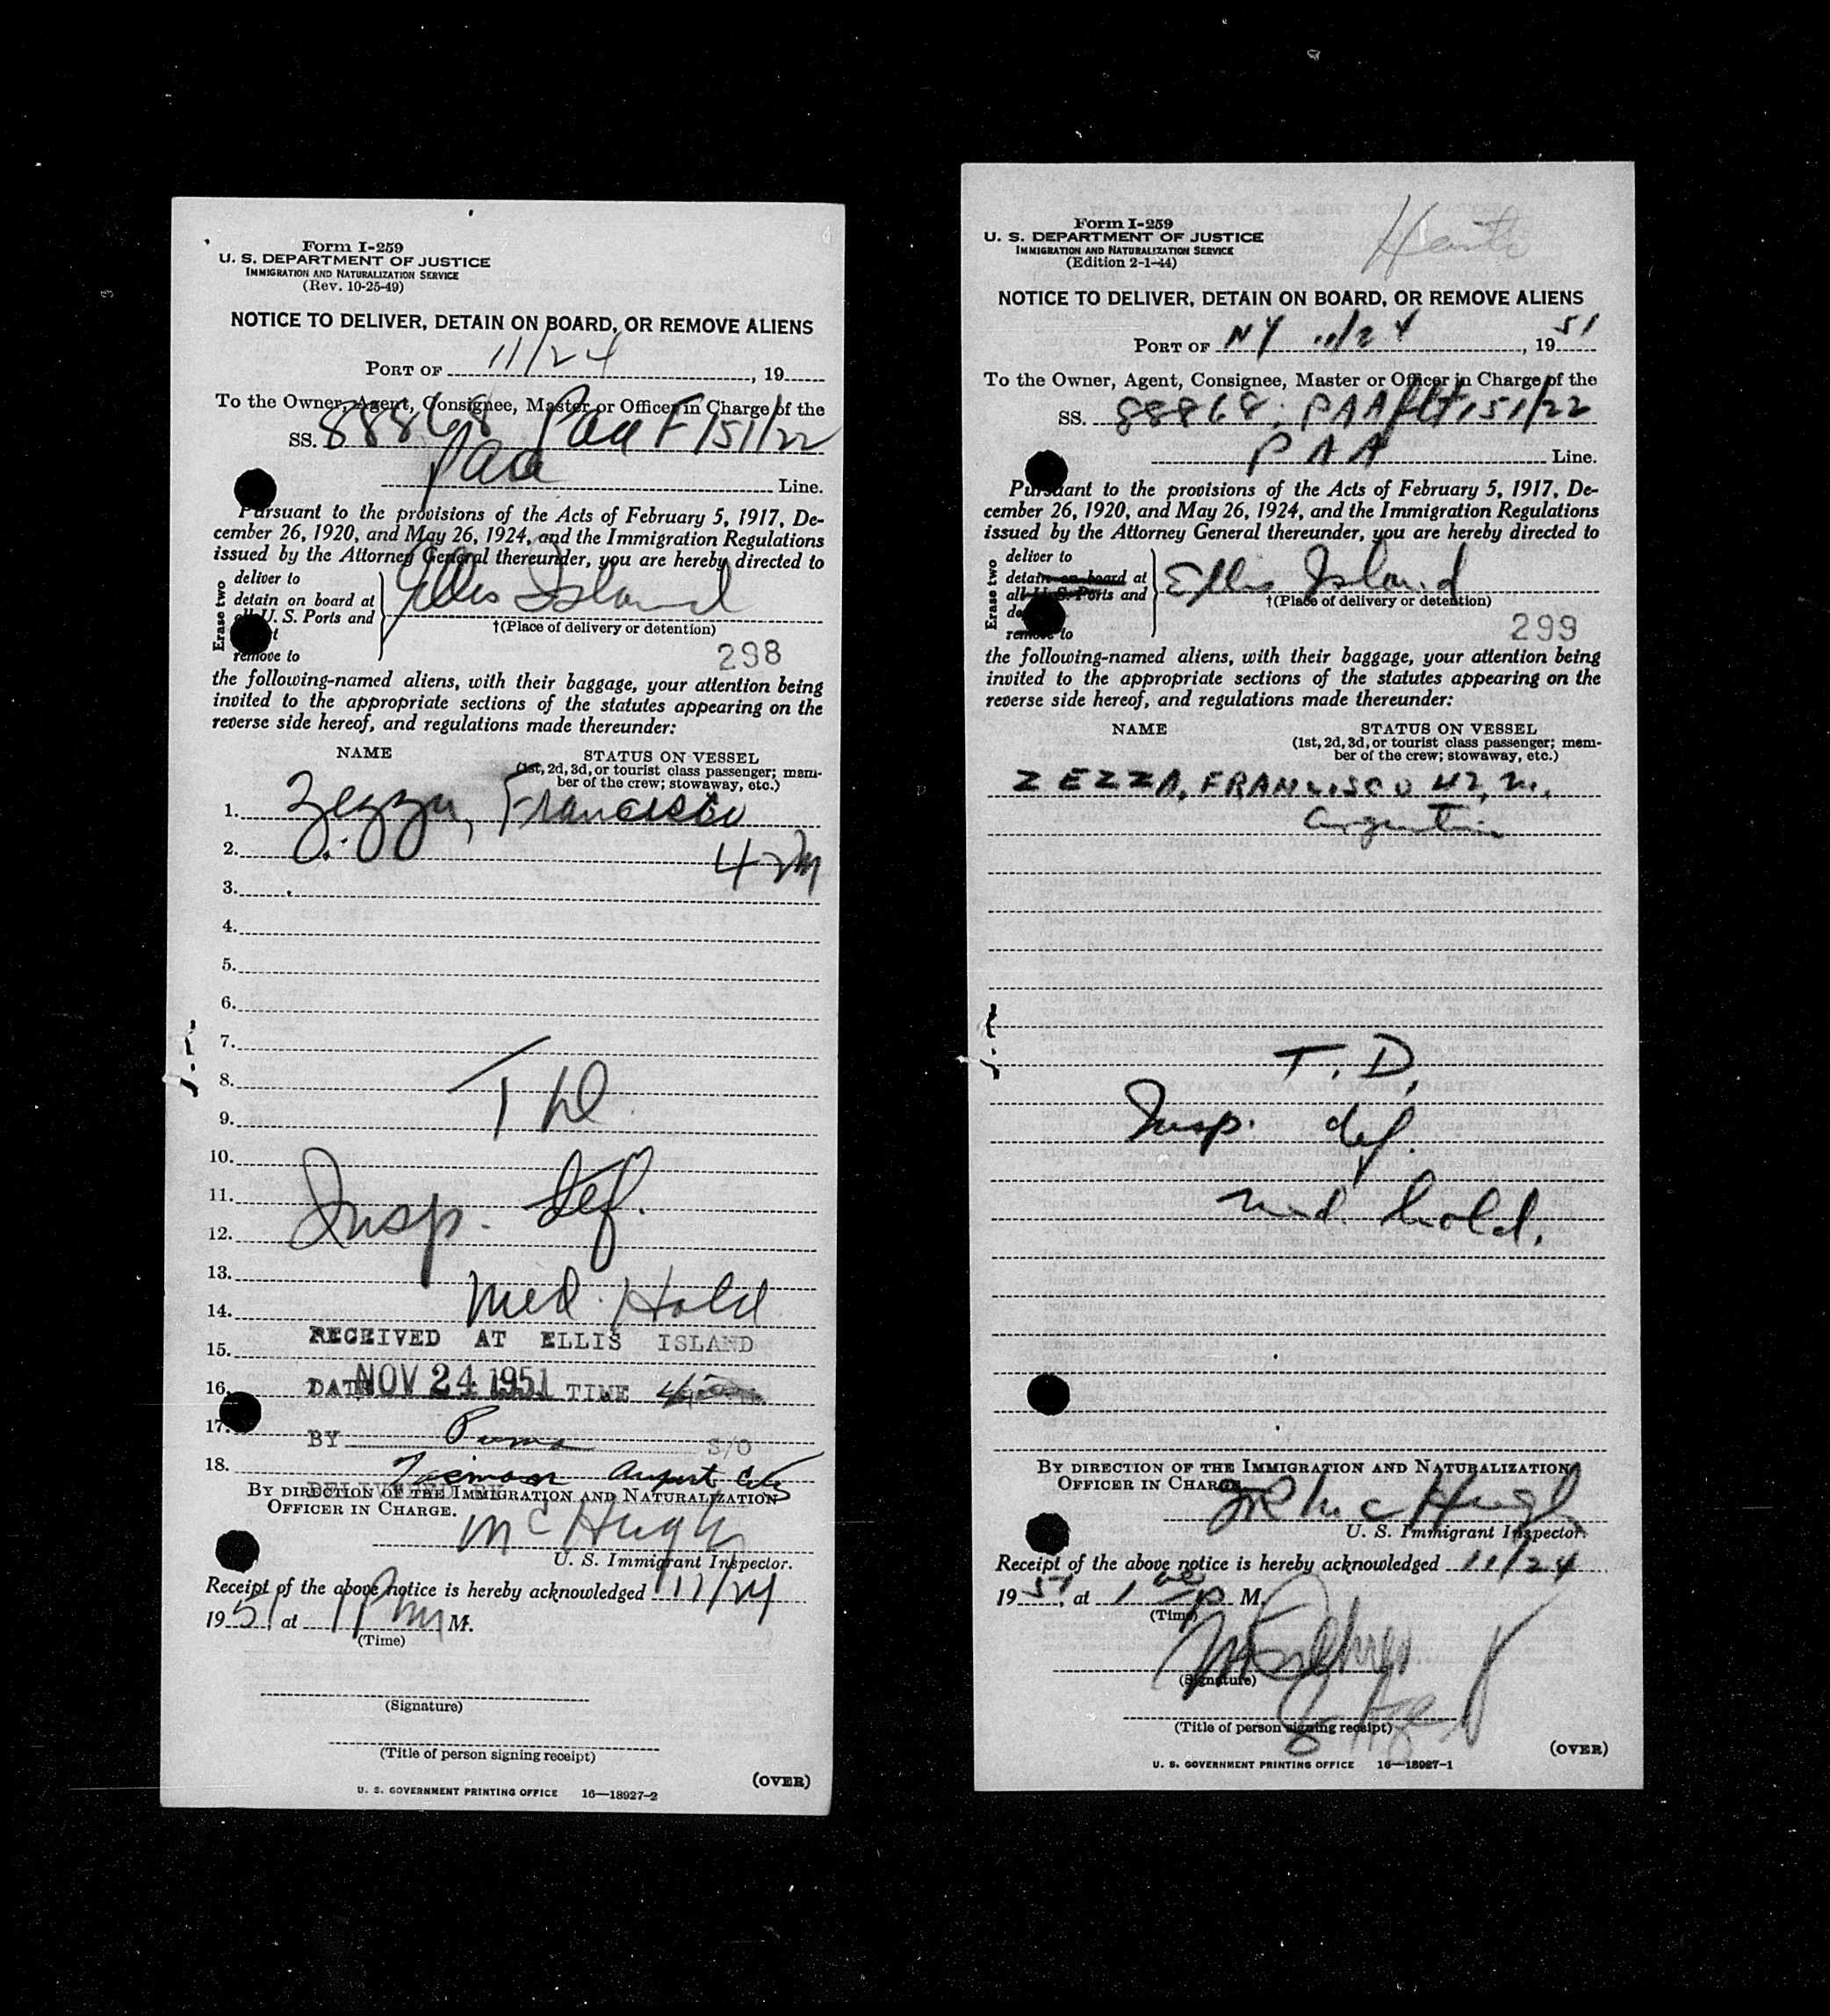 Form I-259
U. S. DEPARTMENT OF JUSTICE
IMMIGRATION AND NATURALIZATION SERVICE
(Rev. 10-25-49)
NOTICE TO DELIVER, DETAIN ON BOARD, OR REMOVE ALIENS
PORT OF 11/24, 19
To the Owner, Agent, Consignee, Master or Officer in Charge of the
SS. 88868 Paa F 151/22
Paa Line.
Pursuant to the provisions of the Acts of February 5, 1917, De-
cember 26, 1920, and May 26, 1924, and the Immigration Regulations
issued by the Attorney General thereunder, you are hereby directed to
Erase two
deliver to
detain on board at
U. S. Ports and
remove to
Ellis Island
†(Place of delivery or detention)
298
the following-named aliens, with their baggage, your attention being
invited to the appropriate sections of the statutes appearing on the
reverse side hereof, and regulations made thereunder:
NAME STATUS ON VESSEL
(1st, 2d, 3d, or tourist class passenger; mem-
ber of the crew; stowaway, etc.)
1. Zezza, Francisco
2. 42 M
3.
4.
5.
6.
7.
8. T D
9.
10.
11. Insp. def.
12.
13.
14. Med. Hold
RECEIVED AT ELLIS ISLAND
15.
16. DATE NOV 24 1951 TIME
17.
BY S/O
18. Airport
DELIVERED BY
BY DIRECTION OF THE IMMIGRATION AND NATURALIZATION
OFFICER IN CHARGE.
McHugh
U. S. Immigrant Inspector.
Receipt of the above notice is hereby acknowledged 11/24
1951 at 1 Pm M.
(Time)
(Signature)
(Title of person signing receipt)
(OVER)
U. S. GOVERNMENT PRINTING OFFICE 16—18927-2
Form I-259
U. S. DEPARTMENT OF JUSTICE
IMMIGRATION AND NATURALIZATION SERVICE
(Edition 2-1-44)
NOTICE TO DELIVER, DETAIN ON BOARD, OR REMOVE ALIENS
PORT OF NY 11/24, 1951
To the Owner, Agent, Consignee, Master or Officer in Charge of the
SS. 88868: PAA flt 151/22
PAA Line.
Pursuant to the provisions of the Acts of February 5, 1917, De-
cember 26, 1920, and May 26, 1924, and the Immigration Regulations
issued by the Attorney General thereunder, you are hereby directed to
Erase two
deliver to
detain on board at
all U. S. Ports and
remove to
Ellis Island
†(Place of delivery or detention)
299
the following-named aliens, with their baggage, your attention being
invited to the appropriate sections of the statutes appearing on the
reverse side hereof, and regulations made thereunder:
NAME STATUS ON VESSEL
(1st, 2d, 3d, or tourist class passenger; mem-
ber of the crew; stowaway, etc.)
ZEZZA, FRANCISCO 42, M.,
T. D.
Insp. def.
med. hold.
BY DIRECTION OF THE IMMIGRATION AND NATURALIZATION
OFFICER IN CHARGE.
JR McHugh
U. S. Immigrant Inspector.
Receipt of the above notice is hereby acknowledged 11/24
1951, at 1 p M.
(Time)
(Signature)
(Title of person signing receipt)
(OVER)
U. S. GOVERNMENT PRINTING OFFICE 16—18927-1